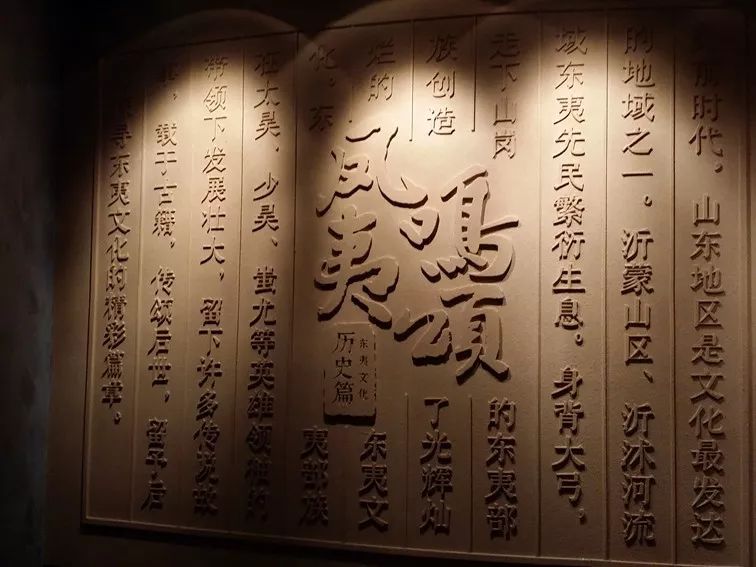 前时代，山东地区是文化最发达
的地域之一。沂蒙山区、沂沭河流
域东夷先民繁衍生息。身背大弓、
走下山岗的东夷部
族创造了光辉灿
烂的东夷文
化。东夷部族
在太昊、少昊、蚩尤等英雄领袖的
带领下发展壮大，留下许多传说故
事，载于古籍，传颂后世，留予后
寻东夷文化的精彩篇章。
凤鸣
夷頌
东夷文化
历史篇